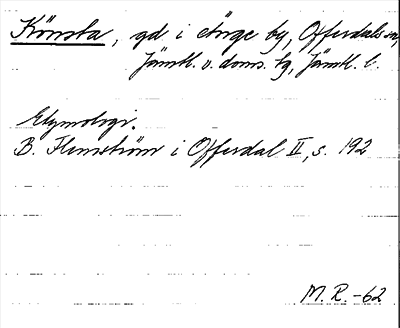 Könsta, gd i Änge by, Offerdals sn,
Jämtl. v. doms. tg, Jämtl. l.
Etymologi.
B. Flemström i Offerdal II, s. 192
M. R. -62